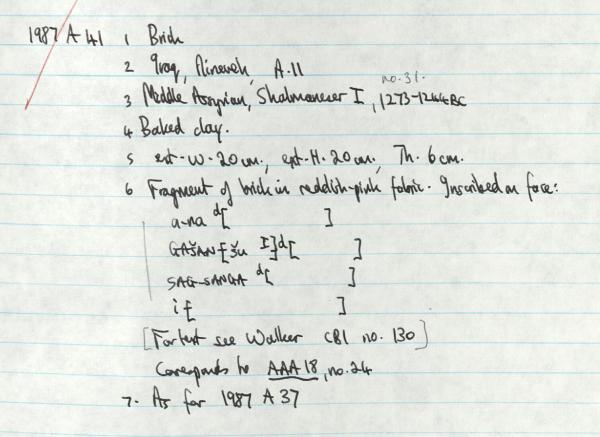 1987 A 41 1 Brick
2 Iraq, Nineveh, A.11
no. 31.
3 Middle Assyrian, Shalmaneser I, 1273-1244 BC
4 Baked clay.
5 ext. W. 20 cm., ext. H. 20 cm., Th. 6 cm.
6 Fragment of brick in reddish-pink fabric. Inscribed on face:
a-na d[ ]
GAŠAN[šu I]d[ ]
SAG-SANGA d[ ]
i[ ]
[For text see Walker CBI no. 130]
Corresponds to AAA 18, no. 24
7. As for 1987 A 37